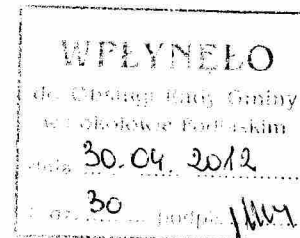 WPŁYNĘŁO
do Obsługi Rady Gminy
w Sokołowie Podlaskim
dnia 30.04.2012
30 podpis